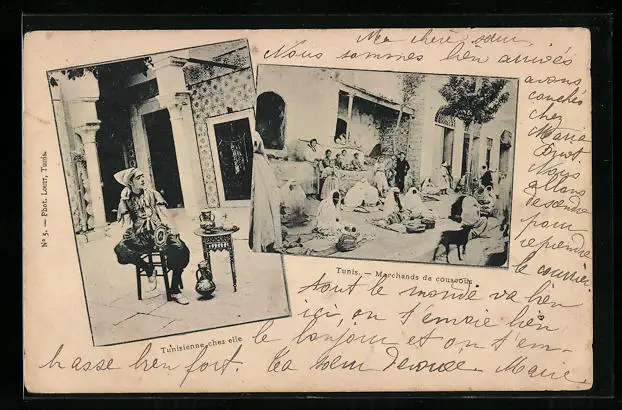 Ma chère sœur,
Nous sommes bien arrivés
avons
couchés
chez
Maria
Nous
allons
descendre
pour
reprendre
le courrier
tout le monde va bien
ici, on t'envoie bien
le bonjour et on t'em-
brasse bien fort. Ta sœur Marie
Nº 5. — Phot. Louit, Tunis.
Tunis. — Marchands de couscous
Tunisienne chez elle